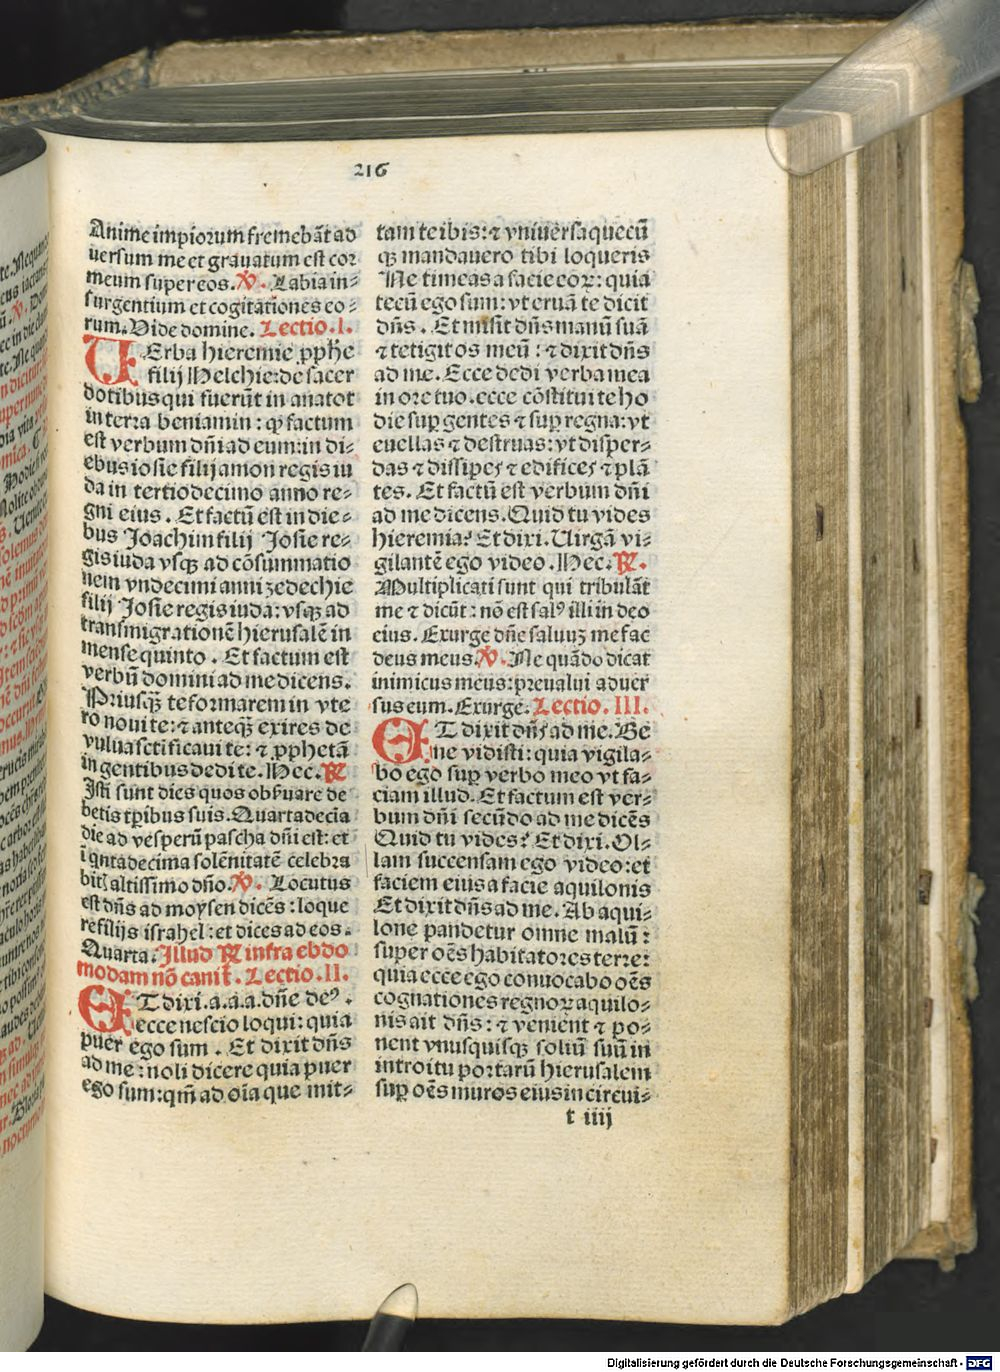 216
Anime impiorum fremebāt ad
uersum me et grauatum est cor
meum super eos. ℣. Labia in⸗
surgentium et cogitationes eo⸗
rum. Vide domine. Lectio .I.
VErba hieremie ꝓphe
filij Helchie: de sacer
dotibus qui fuerūt in anatot
in terra beniamin: ꝙ factum
est verbum dn̄i ad eum: in di⸗
ebus iosie filij amon regis iu
da in tertiodecimo anno re⸗
gni eius . Et factū est in die⸗
bus Joachim filij Josie re⸗
gis iuda vsqꝫ ad cōsummatio
nem vndecimi anni zedechie
filij Josie regis iuda: vsqꝫ ad
transmigrationē hierusalē in
mense quinto . Et factum est
verbū domini ad me dicens.
Priusqꝫ te formarem in vte
ro noui te: ⁊ anteqꝫ exires de
vulua sctificaui te: ⁊ ꝓphetā
in gentibus dedi te. Hec. ℟
Isti sunt dies quos obẜuare de
betis tꝑibus suis. Quartadecīa
die ad vesperū pascha dn̄i est: et
ī qntadecima solēnitatē celebra
bit altissimo dn̄o. ℣. Locutus
est dn̄s ad moysen dicēs : loque
re filijs israhel: et dices ad eos.
Quarta. Illud ℟ infra ebdo
modam nō canit̄. Lectio .II.
ET dixi. a. a. a. dn̄e deꝰ .
ecce nescio loqui: quia
puer ego sum . Et dixit dn̄s
ad me: noli dicere quia puer
ego sum: qm̄ ad oīa que mit⸗
tam te ibis: ⁊ vniuersa quecū
qꝫ mandauero tibi loqueris
Ne timeas a facie eoꝝ: quia
tecū ego sum: vt eruā te dicit
dn̄s . Et misit dn̄s manū suā
⁊ tetigit os meū : ⁊ dixit dn̄s
ad me. Ecce dedi verba mea
in ore tuo. ecce cōstitui te ho
die suꝑ gentes ⁊ suꝑ regna: vt
euellas ⁊ destruas: vt disper⸗
das ⁊ dissipes ⁊ edifices ⁊ plā
tes. Et factū est verbum dn̄i
ad me dicens. Quid tu vides
hieremia? Et dixi. Uirgā vi⸗
gilantē ego video . Hec. ℟.
Multiplicati sunt qui tribulāt
me ⁊ dicūt: nō est salꝰ illi in deo
eius. Exurge dn̄e saluuꝫ me fac
deus meus. ℣. Ne quādo dicat
inimicus meus: preualui aduer
sus eum. Exurge. Lectio .III.
ET dixit dn̄s ad me. Be
ne vidisti: quia vigila⸗
bo ego suꝑ verbo meo vt fa⸗
ciam illud. Et factum est ver⸗
bum dn̄i secūdo ad me dicēs
Quid tu vides? Et dixi. Ol⸗
lam succensam ego video: et
faciem eius a facie aquilonis
Et dixit dn̄s ad me. Ab aqui⸗
lone pandetur omne malū :
super oēs habitatores terre:
quia ecce ego conuocabo oēs
cognationes regnoꝝ aquilo⸗
nis ait dn̄s : ⁊ venient ⁊ po⸗
nent vnusquisqꝫ soliū suū in
introitu portarū hierusalem
suꝑ oēs muros eius in circui⸗
t iiij
Digitalisierung gefördert durch die Deutsche Forschungsgemeinschaft - DFG